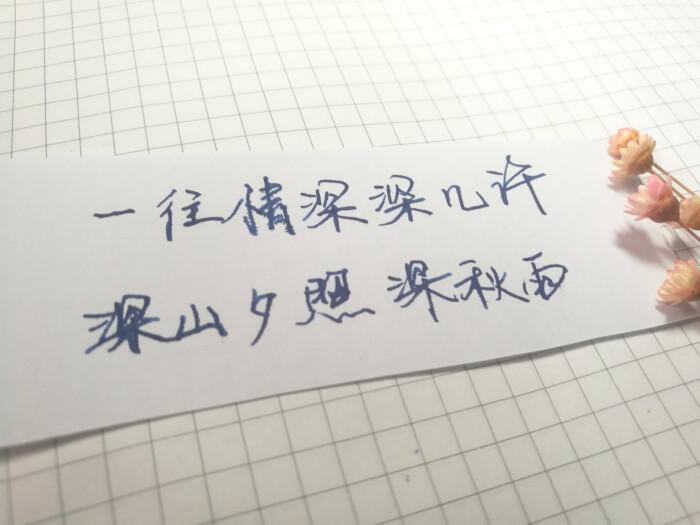 一往情深深几许
深山夕照深秋雨